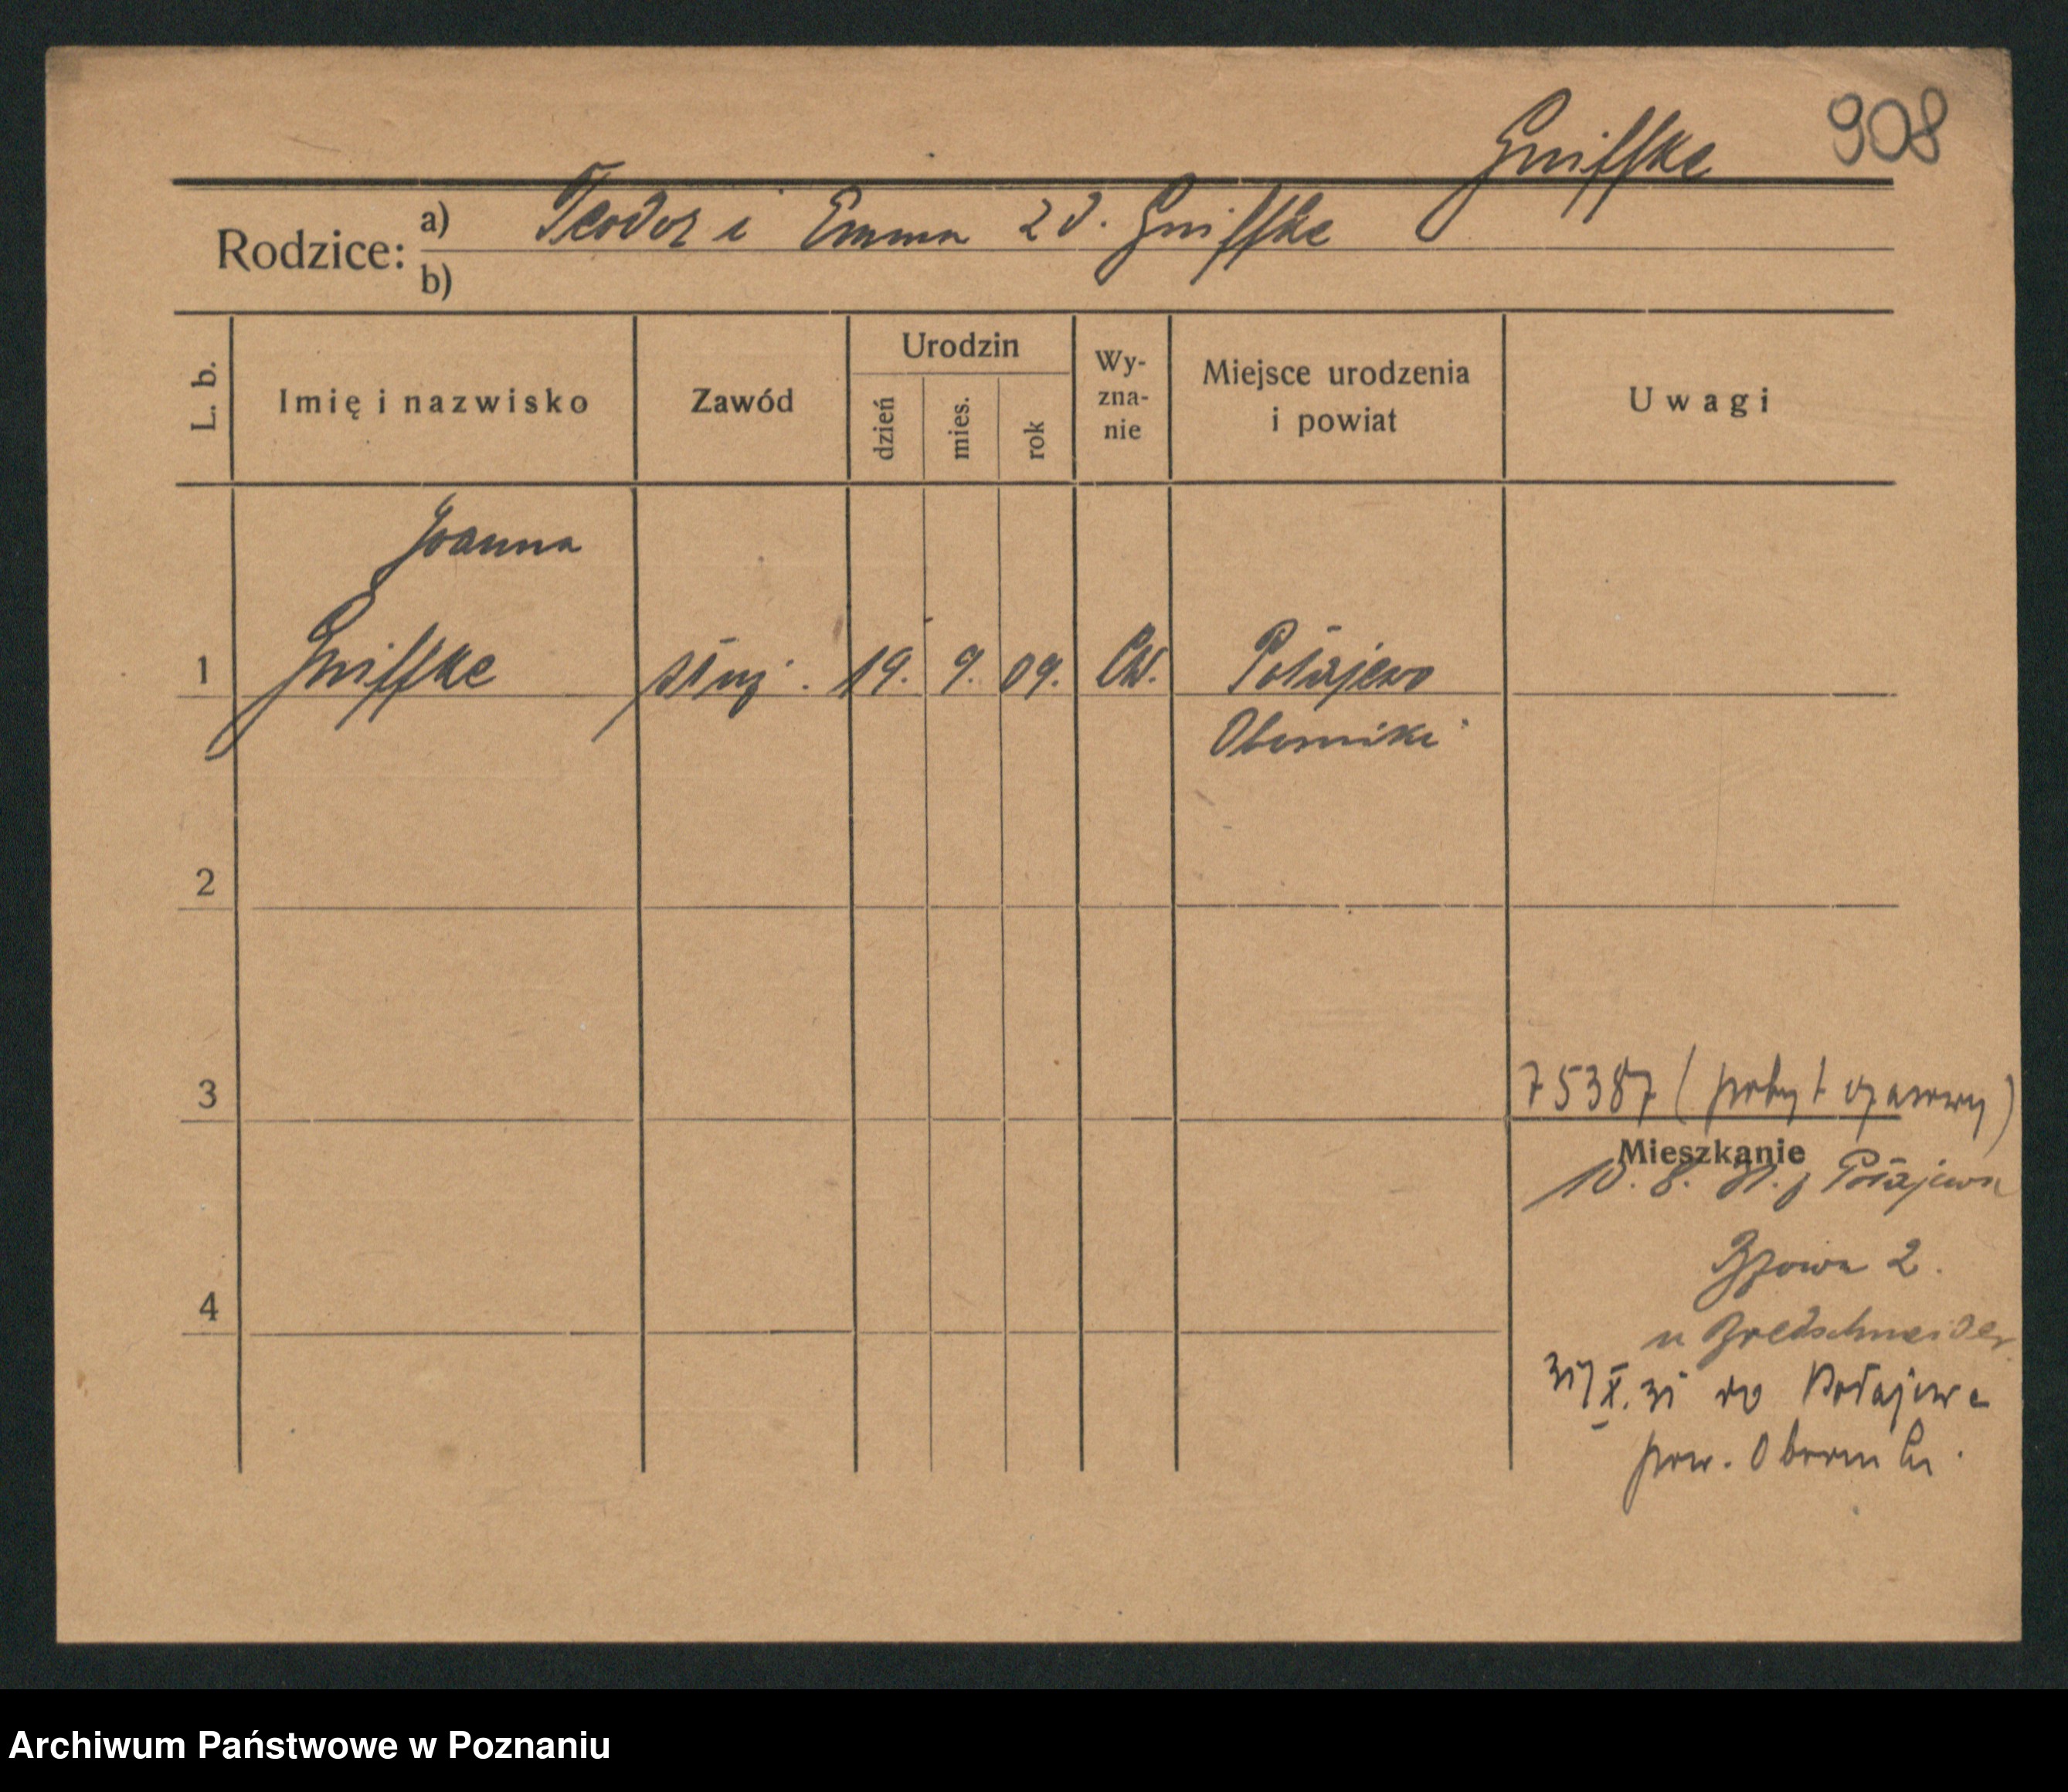 Gniffke 908
Rodzice: a) Teodor i Emma zd. Gniffke
b)
L. b. Imię i nazwisko Zawód Urodzin dzień mies. rok Wy-zna-nie Miejsce urodzenia i powiat Uwagi
Joanna
1 Gniffke służ. 19. 9. 09. ew. Połajewo
Oborniki
2
3 75387 (pobyt czasowy)
Mieszkanie
10. 8. 31. z Połajewa
Bzowa 2.
4 u Bredschneider
31/X. 31 do Połajewa
pow. Oborniki.
Archiwum Państwowe w Poznaniu